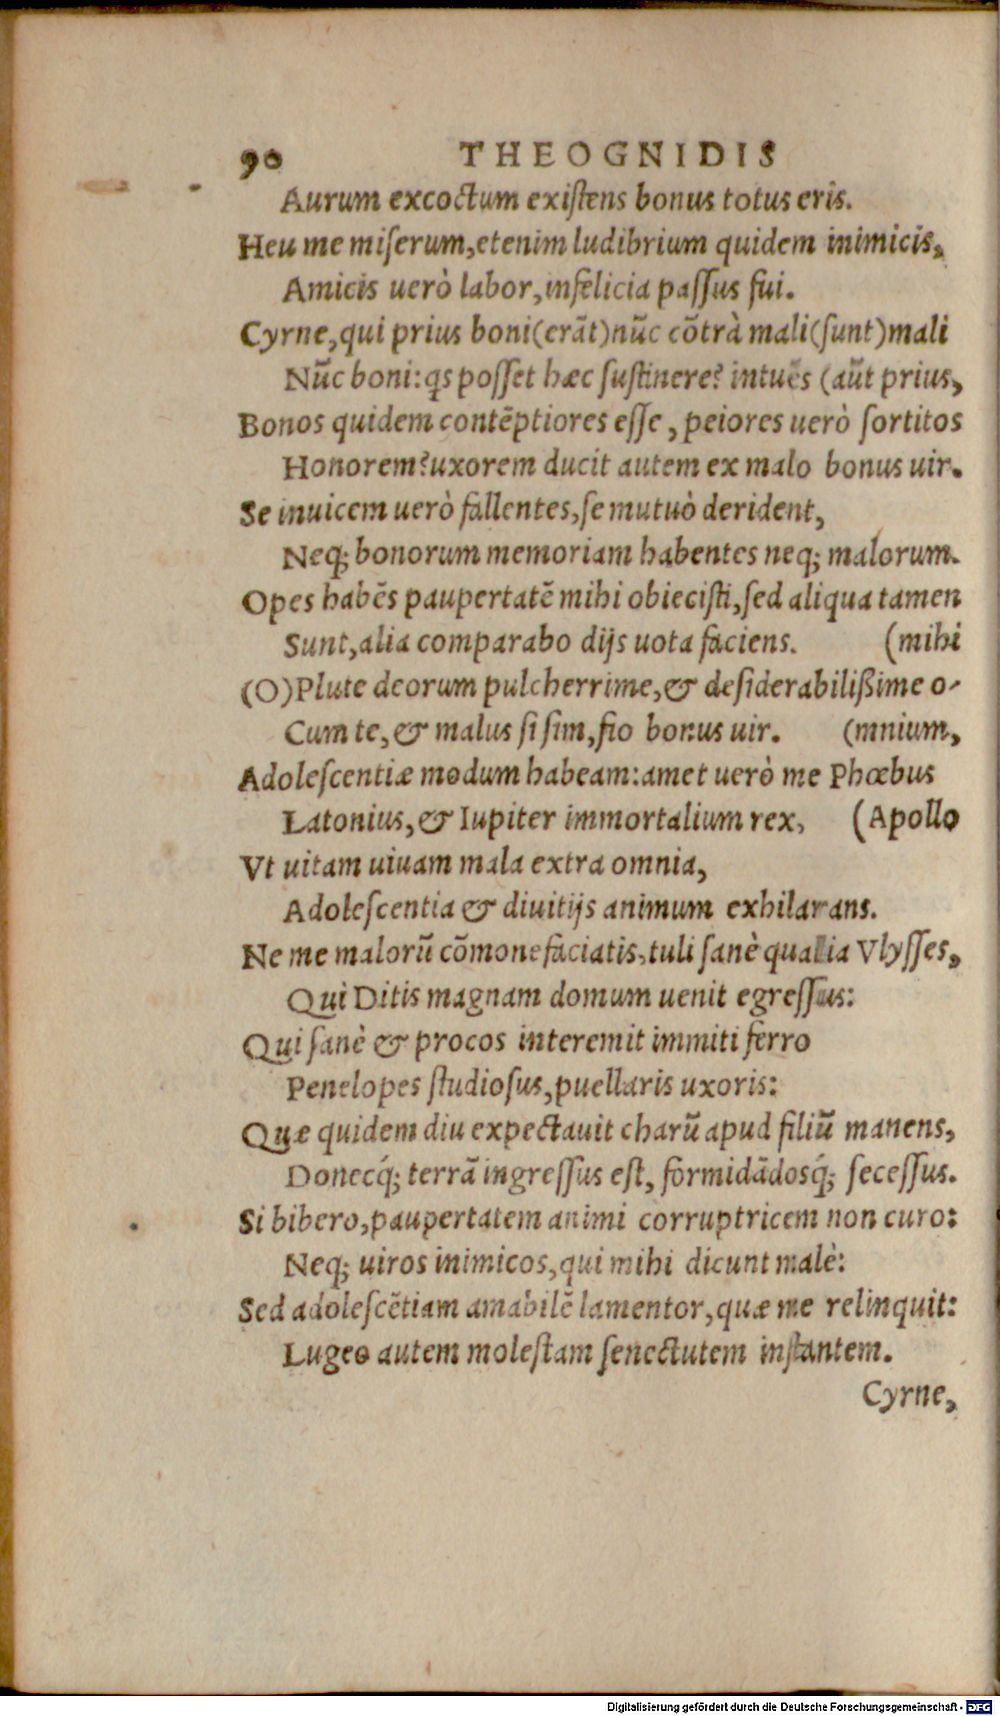 90 THEOGNIDIS
Aurum excoctum existens bonus totus eris.
Heu me miserum, etenim ludibrium quidem inimicis,
Amicis uerò labor, infelicia passus fui.
Cyrne, qui prius boni (erãt) nũc cõtrà mali (sunt) mali
Nũc boni: qs posset hæc sustinere? intuẽs (aũt prius,
Bonos quidem contẽptiores esse, peiores uerò sortitos
Honorem? uxorem ducit autem ex malo bonus uir.
Se inuicem uerò fallentes, se mutuò derident,
Neq; bonorum memoriam habentes neq; malorum.
Opes habẽs paupertatẽ mihi obiecisti, sed aliqua tamen
Sunt, alia comparabo dijs uota faciens. (mihi
(O) Plute deorum pulcherrime, & desiderabilißime o-
Cum te, & malus si sim, fio bonus uir. (mnium,
Adolescentiæ modum habeam: amet uerò me Phœbus
Latonius, & Iupiter immortalium rex, (Apollo
Vt uitam uiuam mala extra omnia,
Adolescentia & diuitijs animum exhilarans.
Ne me malorũ cõmonefaciatis, tuli sanè qualia Vlysses,
Qui Ditis magnam domum uenit egressus:
Qui sanè & procos interemit immiti ferro
Penelopes studiosus, puellaris uxoris:
Quæ quidem diu expectauit charũ apud filiũ manens,
Donecq́; terrã ingressus est, formidãdosq́; secessus.
Si bibero, paupertatem animi corruptricem non curo:
Neq; uiros inimicos, qui mihi dicunt malè:
Sed adolescẽtiam amabilẽ lamentor, quæ me relinquit:
Lugeo autem molestam senectutem instantem.
Cyrne,
Digitalisierung gefördert durch die Deutsche Forschungsgemeinschaft - DFG